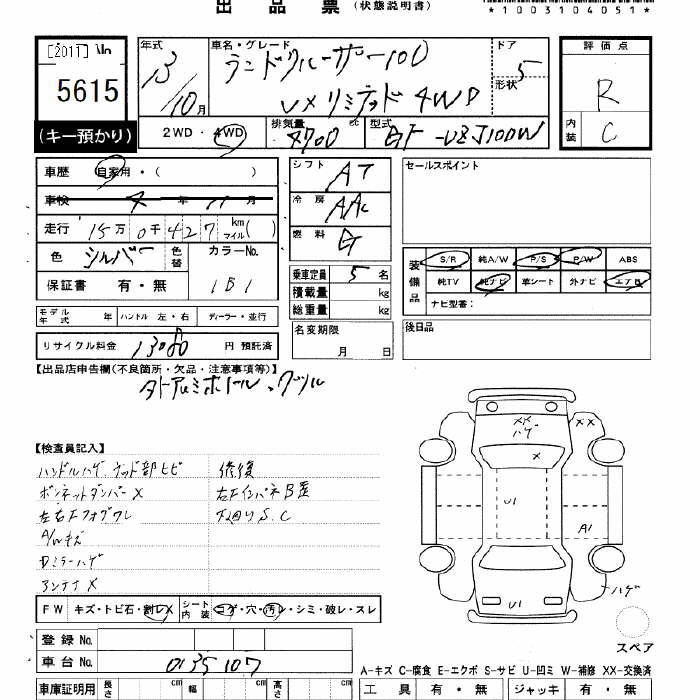 出品票 (状態説明書)
*1003104051*
[2011] 1/10
5615
(キー預かり)
年式 13/10月
車名・グレード ランドクルーザー100
VXリミテッド 4WD
ドア 5
形状
評価点 R
内装 C
2WD・4WD
排気量 4700 cc
型式 GF-UZJ100W
車歴 自家用・( )
車検 年 11月
走行 15万0千427 km マイル( )
色 シルバー 色替
カラーNo. 1B1
保証書 有・無
シフト AT
冷房 AAC
燃料 G
乗車定員 5名
積載量 kg
総重量 kg
セールスポイント
装備品 S/R 純A/W P/S P/W ABS
純TV 純ナビ 革シート 外ナビ エアB
ナビ型番:
モデル年式 年 ハンドル 左・右 ディーラー・並行
リサイクル料金 13080 円 預託済
名変期限 月 日
後日品
【出品店申告欄(不良箇所・欠品・注意事項等)】
タトアルミホイール、クツル
【検査員記入】
ハンドルハゲ、ウッド部ヒビ 修復
ボンネットダンパーX 右Fインパネ B歪
左右Fフォグワレ 下廻りS.C
A/Wキズ
Dミラーハゲ
アンテナX
FW キズ・トビ石・割レX シート内装 コゲ・穴・汚レ・シミ・破レ・スレ
登録No.
車台No. 0135107
車庫証明用 長さ cm 幅 cm 高さ cm
XX
ハゲ
XX
X
U1
A1
ハゲ
U1
スペア
A-キズ C-腐食 E-エクボ S-サビ U-凹ミ W-補修 XX-交換済
工具 有・無 ジャッキ 有・無